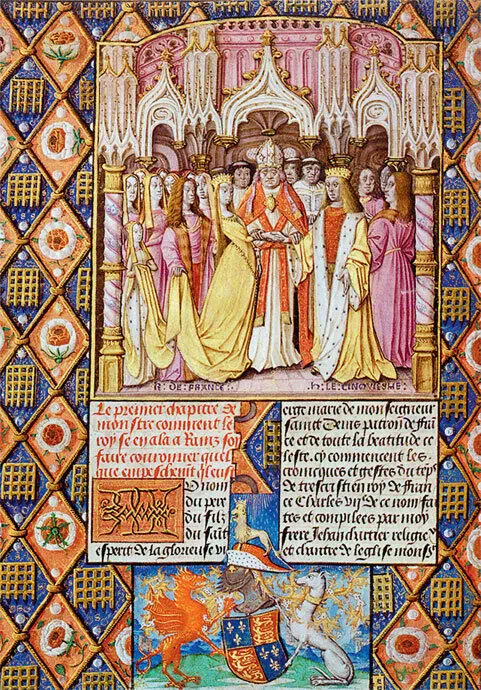 R · DE · FRANCE ·
· h · LE · CINQVIESME ·
Le premier chapitre de
monstre comment le
roy se en ala a Rainz soy
faire couronner quel
que empeschemt
U nom
du pere
du filz
du saīt
esperit de la glorieuse vi
erge marie de monseigneur
sainct Denis patron de frāce
et de toute la beatitude ce
leste. cy commencent les
cronicques et gestes du tēps
de trescrestiē roy de Fran
ce Charles vij de ce nom fai
tes et compilees par moy
frere Jehan chartier religieux
et chantre de leglise monsr